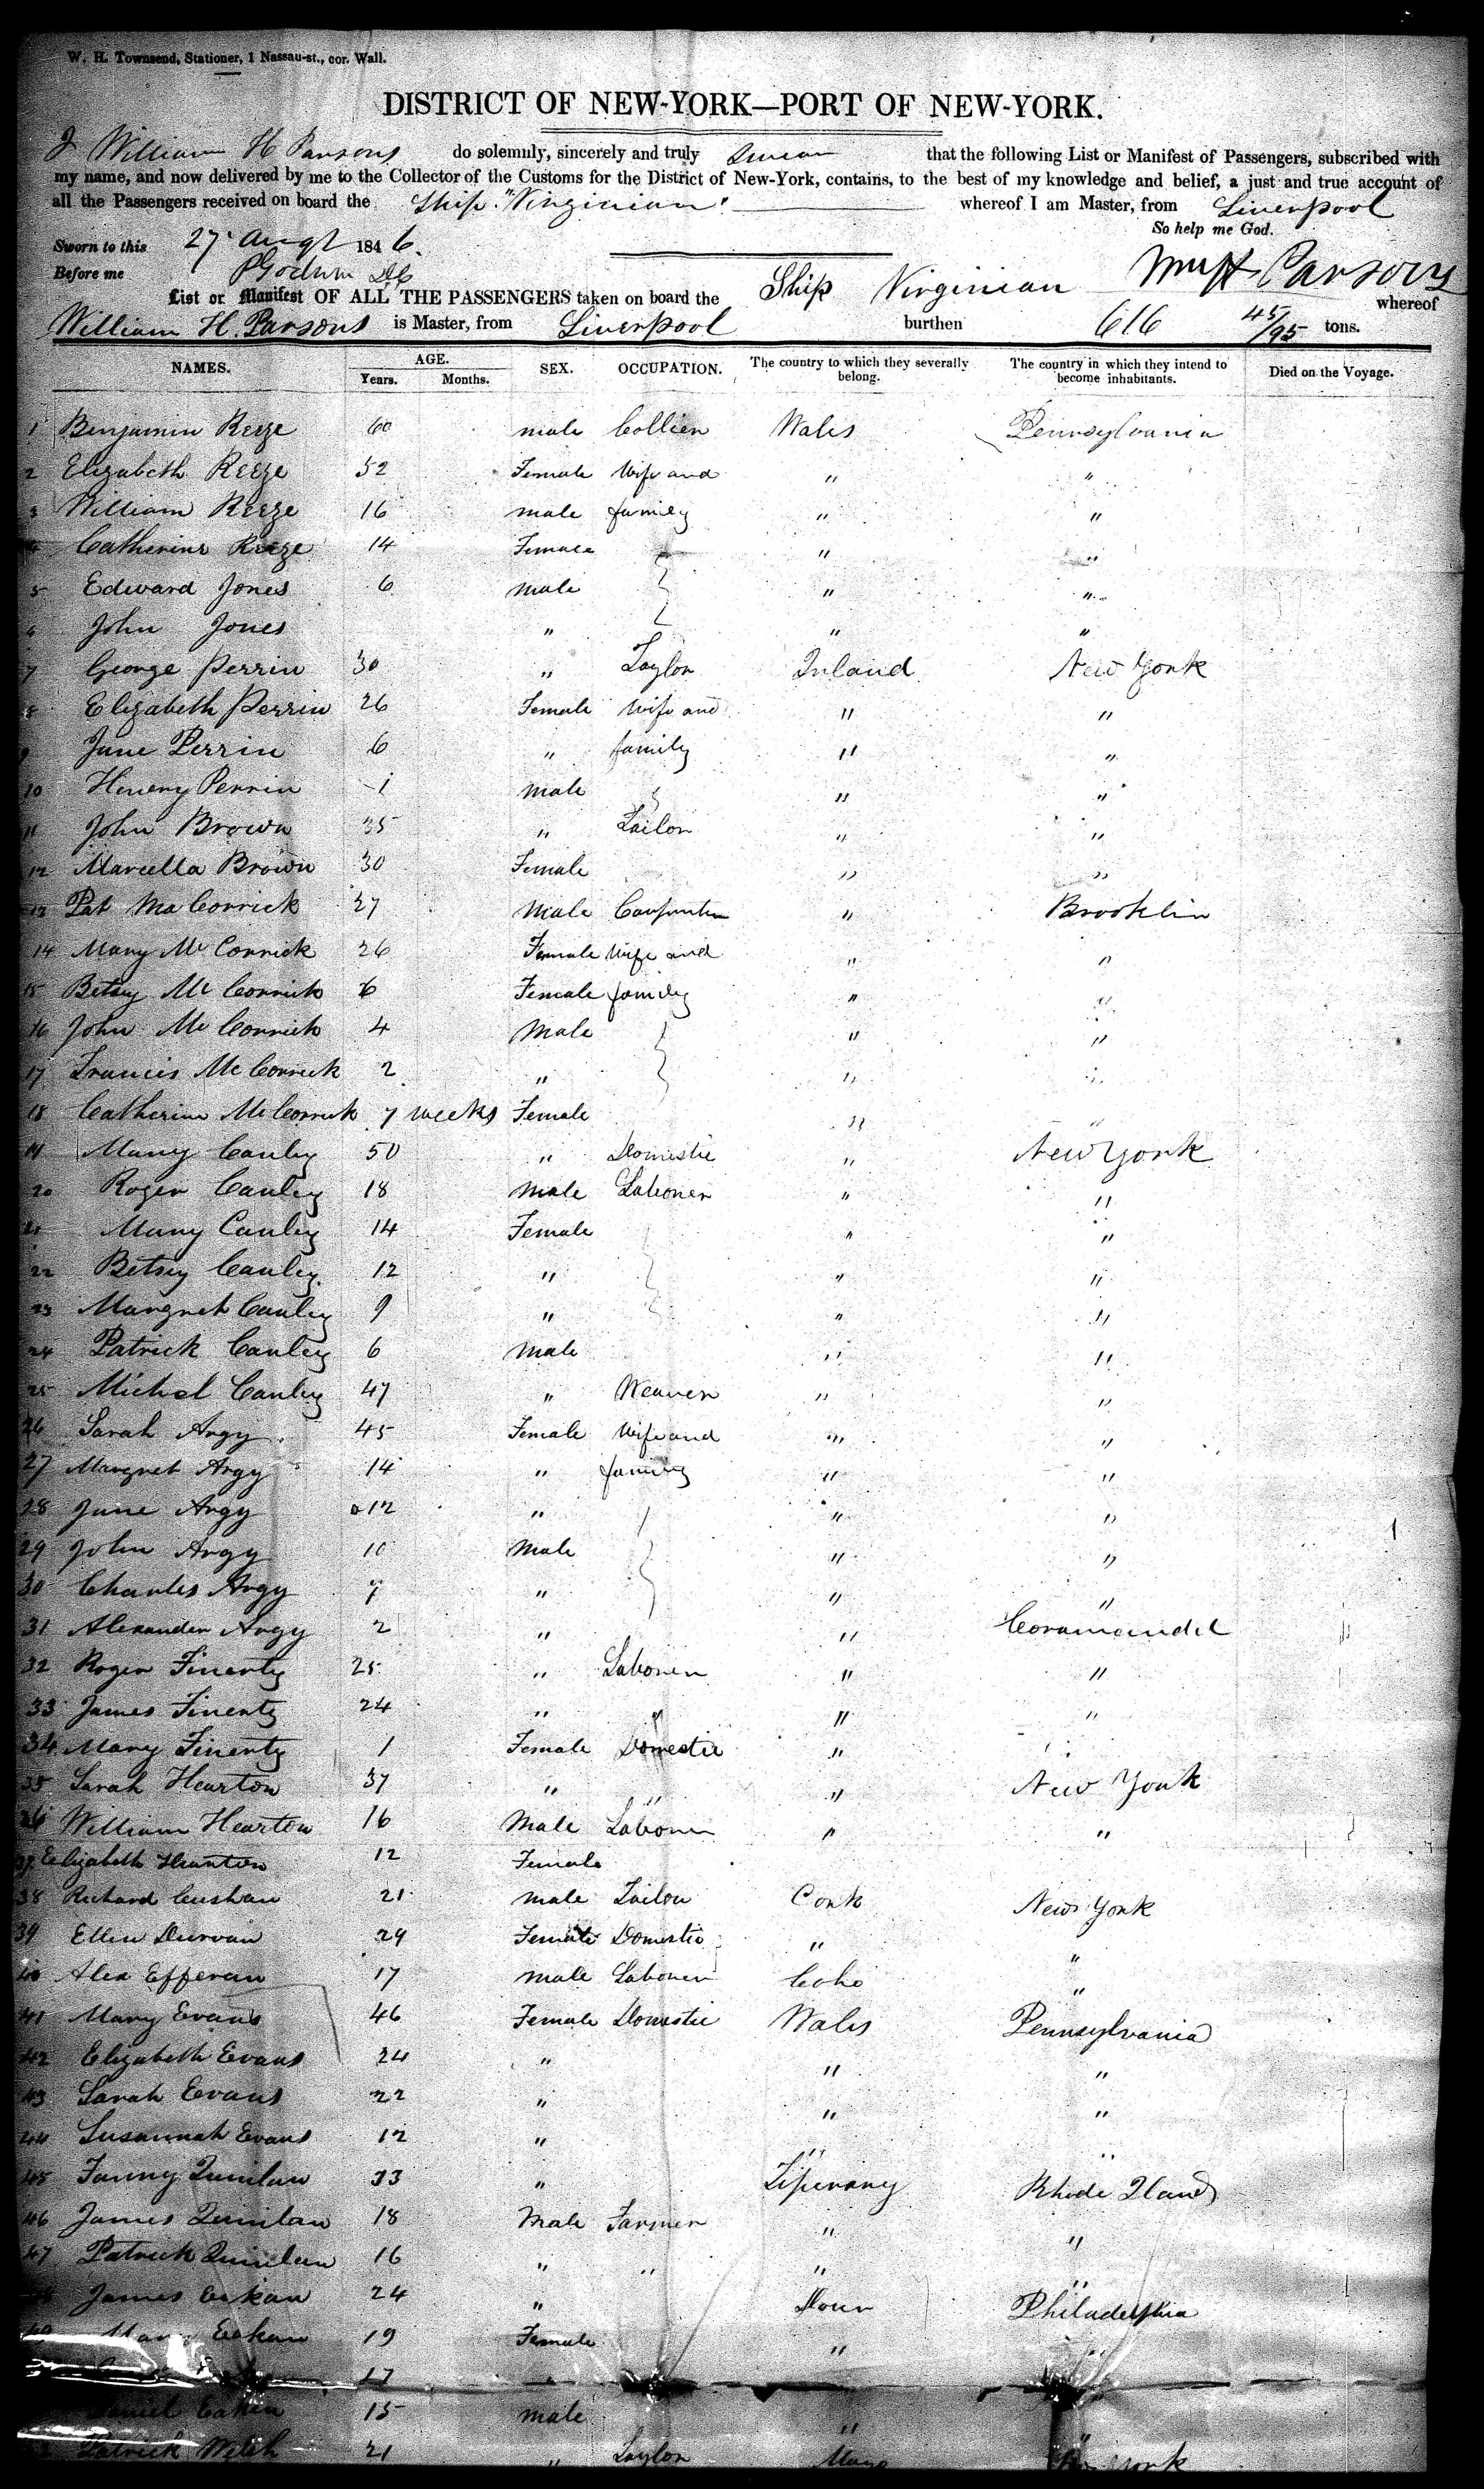 W. H. Townsend, Stationer, 1 Nassau-st., cor. Wall.
DISTRICT OF NEW-YORK—PORT OF NEW-YORK.
I William H Parsons do solemnly, sincerely and truly Swear that the following List or Manifest of Passengers, subscribed with
my name, and now delivered by me to the Collector of the Customs for the District of New-York, contains, to the best of my knowledge and belief, a just and true account of
all the Passengers received on board the Ship "Virginian" whereof I am Master, from Liverpool
So help me God.
Sworn to this 27 Augt 1846.
Before me
Wm H Parsons
List or Manifest OF ALL THE PASSENGERS taken on board the Ship Virginian whereof
William H. Parsons is Master, from Liverpool burthen 616 45/95 tons.
NAMES. AGE. Years. Months. SEX. OCCUPATION. The country to which they severally belong. The country in which they intend to become inhabitants. Died on the Voyage.
1 Benjamin Reeze 60 male Collier Wales Pennsylvania
2 Elizabeth Reeze 52 Female Wife and " "
3 William Reeze 16 male family " "
4 Catherine Reeze 14 Female " "
5 Edward Jones 6 male " "
6 John Jones " " "
7 George Perrin 30 " Taylor Ireland New York
8 Elizabeth Perrin 26 Female Wife and " "
9 Jane Perrin 6 " family " "
10 Henery Perrin 1 male " "
11 John Brown 35 " Tailor " "
12 Marcella Brown 30 Female " "
13 Pat Mc Corrick 27 Male Carpenter " Brooklin
14 Mary Mc Corrick 26 Female Wife and " "
15 Betsey Mc Corrick 6 Female family " "
16 John Mc Corrick 4 Male " "
17 Francis Mc Corrick 2 " " "
18 Catherine Mc Corrick 7 weeks Female " "
19 Mary Cauley 50 " Domestic " New York
20 Roger Cauley 18 Male Laborer " "
21 Mary Cauley 14 Female " "
22 Betsey Cauley 12 " " "
23 Margret Cauley 9 " " "
24 Patrick Cauley 6 Male " "
25 Michel Cauley 47 " Weaver " "
26 Sarah Argy 45 Female Wife and " "
27 Margret Argy 14 " family " "
28 Jane Argy 12 " " "
29 John Argy 10 Male " "
30 Charles Argy 7 " " "
31 Alexander Argy 2 " " Coramandel
32 Roger Finerty 25 " Laborer " "
33 James Finerty 24 " " " "
34 Mary Finerty 1 Female Domestic " "
35 Sarah Hearton 37 " " " New York
36 William Hearton 16 Male Laborer " "
37 Elizabeth Hearton 12 Female
38 Richard Cushan 21 male Tailor Cork New York
39 Ellen Durvan 29 Female Domestic " "
40 Alex Efferan 17 male Laborer "
41 Mary Evans 46 Female Domestic Wales Pennsylvania
42 Elizabeth Evans 24 " " "
43 Sarah Evans 22 " " "
44 Susannah Evans 12 " " "
45 Fanny Quinlan 33 " Tiperary Rhode Iland
46 James Quinlan 18 Male Farmer " "
47 Patrick Quinlan 16 " " " "
James Eakan 24 " Down Philadelphia
49 Mary Eakan 19 Female " "
17 "
Daniel Eaken 15 male " "
Patrick Welsh 21 " Taylor Mayo New York